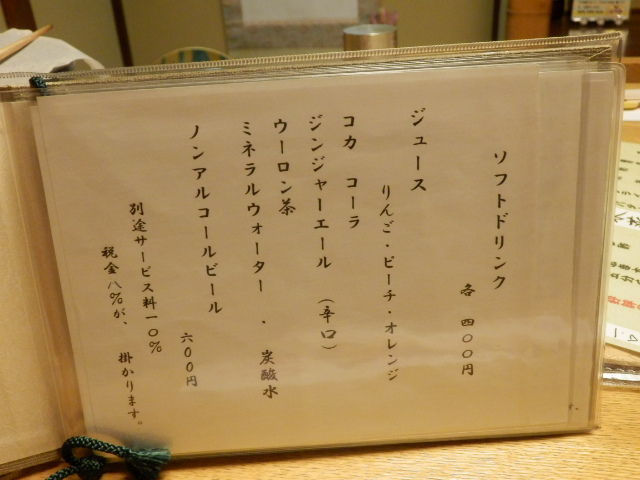 ソフトドリンク
各 四〇〇円
ジュース
りんご・ピーチ・オレンジ
コカ コーラ
ジンジャーエール (辛口)
ウーロン茶
ミネラルウォーター ・ 炭酸水
ノンアルコールビール
六〇〇円
別途サービス料一〇%
税金八%が、 掛かります。